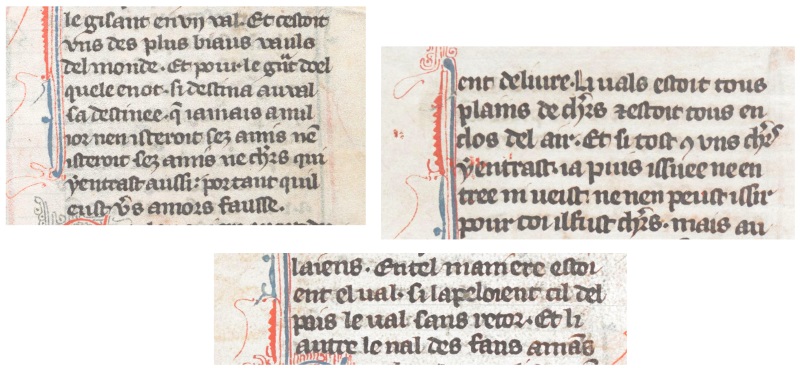 le gisant en vn val. Et cestoit
vns des plus biaus vauls
del monde. Et pour le gr̃t doel
quele en ot. si destina au val
sa destinee. q̃ iamais a nul
ior nen isteroit sez amis nẽ
isteroit sez amis ne ch̃rs qui
y entrast aussi: por tant quil
eust v̾s amors fausse.
ent deliure. Li uals estoit tous
plains de ch̃rs ⁊ estoit tous en
clos del air. Et si tost ꝯ vns ch̃rs
y entrast. ia puis issuee ne en
tree ni ueist. ne nen peust issir
pour coi il fust ch̃rs. mais au
laiens. En tel maniere estoi
ent el ual. si lapeloient cil del
pais le ual sans retor. Et li
autre le ual des faus amãs